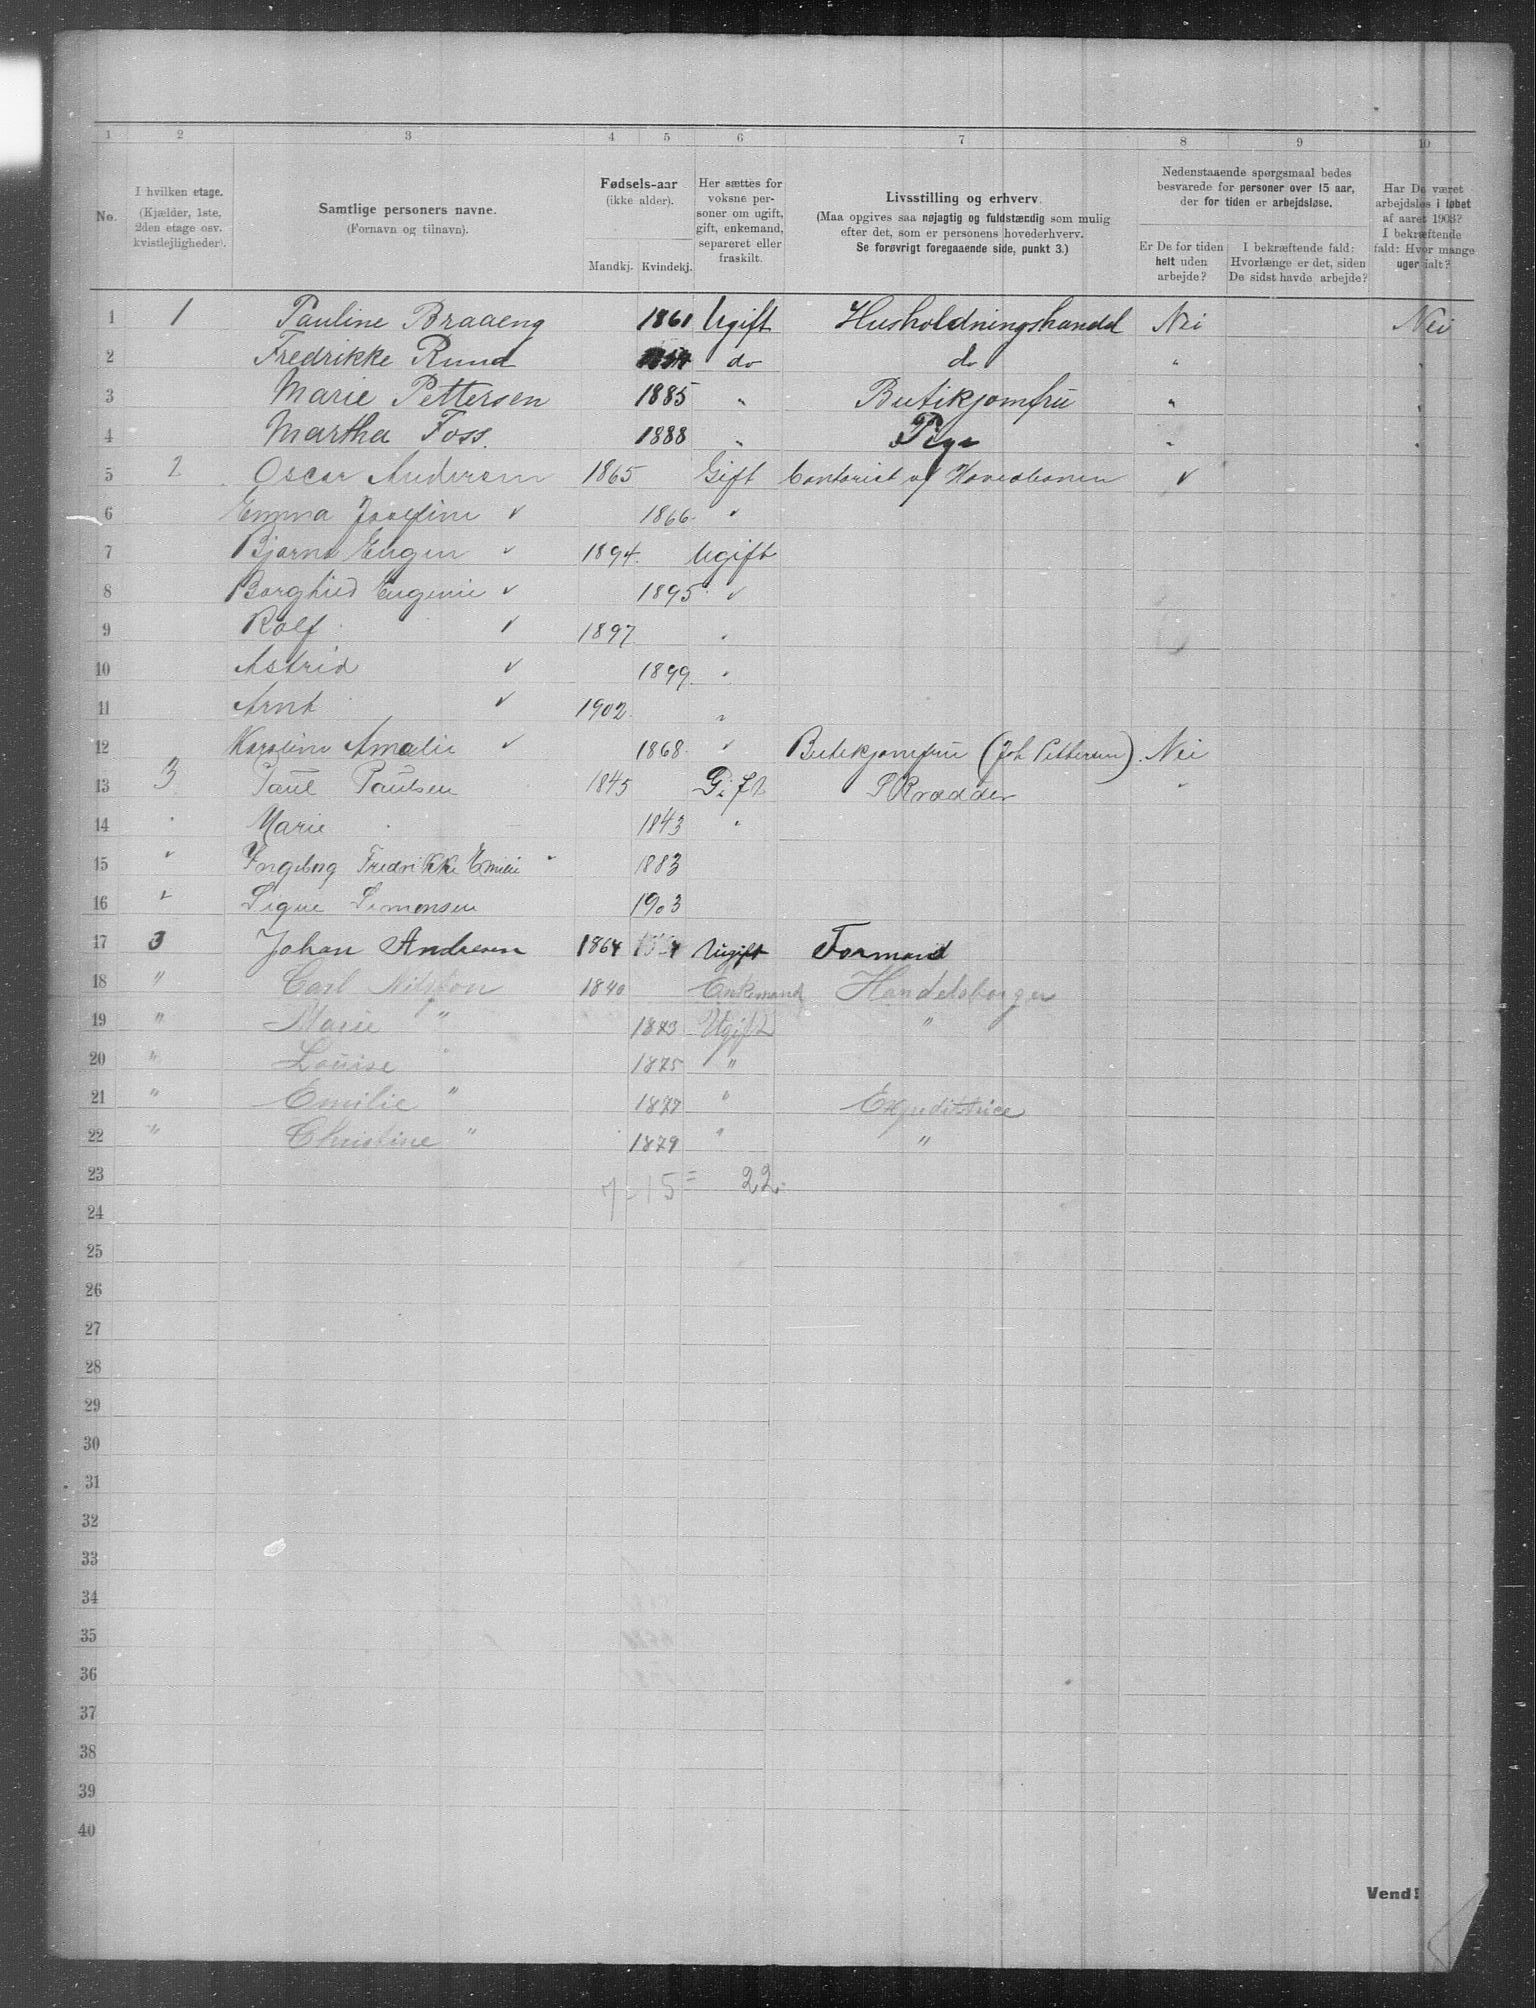 1 2 3 4 5 6 7 8 9 10
No.
I hvilken etage.
(Kjælder, 1ste,
2den etage osv.
kvistlejligheder).
Samtlige personers navne.
(Fornavn og tilnavn).
Fødsels-aar
(ikke alder).
Mandkj. Kvindekj.
Her sættes for
voksne per-
soner om ugift,
gift, enkemand,
separeret eller
fraskilt.
Livsstilling og erhverv.
(Maa opgives saa nøjagtig og fuldstærdig som mulig
efter det, som er personens hovederhverv.
Se forøvrigt foregaaende side, punkt 3.)
Nedenstaaende spørgsmaal bedes
besvarede for personer over 15 aar,
der for tiden er arbejdsløse.
Er De for tiden
helt uden
arbejde?
I bekræftende fald:
Hvorlænge er det, siden
De sidst havde arbejde?
Har De været
arbejdsløs i løbet
af aaret 1903?
I bekræftende
fald: Hvor mange
uger ialt?
1 1 Pauline Braaeng 1861 Ugift Husholdningshandel Nei Nei
2 Fredrikke Rund do do "
3 Marie Pettersen 1885 " Butikjomfru "
4 Martha Foss. 1888 " Pige "
5 2 Oscar Andersen 1865 Gift Contorist v/ Hovedbanen v
6 Emma Josefine v 1866. "
7 Bjarne Eugen v 1894. Ugift
8 Borghild Eugenie v 1895. v
9 Rolf v 1897 "
10 Astrid v 1899. "
11 Arnt v 1902. "
12 Karoline Amalie v 1868. v Butikjomfru (Joh Pettersen). Nei
13 3 Paul Paulsen 1845 Gift "
14 " Marie 1843 "
15 v Ingeborg Fredrikke Emilie " 1883
16 v Signe Simensen 1903
17 3 Johan Andresen 1864 Ugift Formand
18 " Carl Nilsson 1840 Enkemand Handelsborger
19 " Marie " 1873 Ugift "
20 " Louise " 1875 "
21 " Emilie " 1877 " Expeditrice
22 " Christine " 1879 " "
23 7-15= 22.
24
25
26
27
28
29
30
31
32
33
34
35
36
37
38
39
40
Vend!